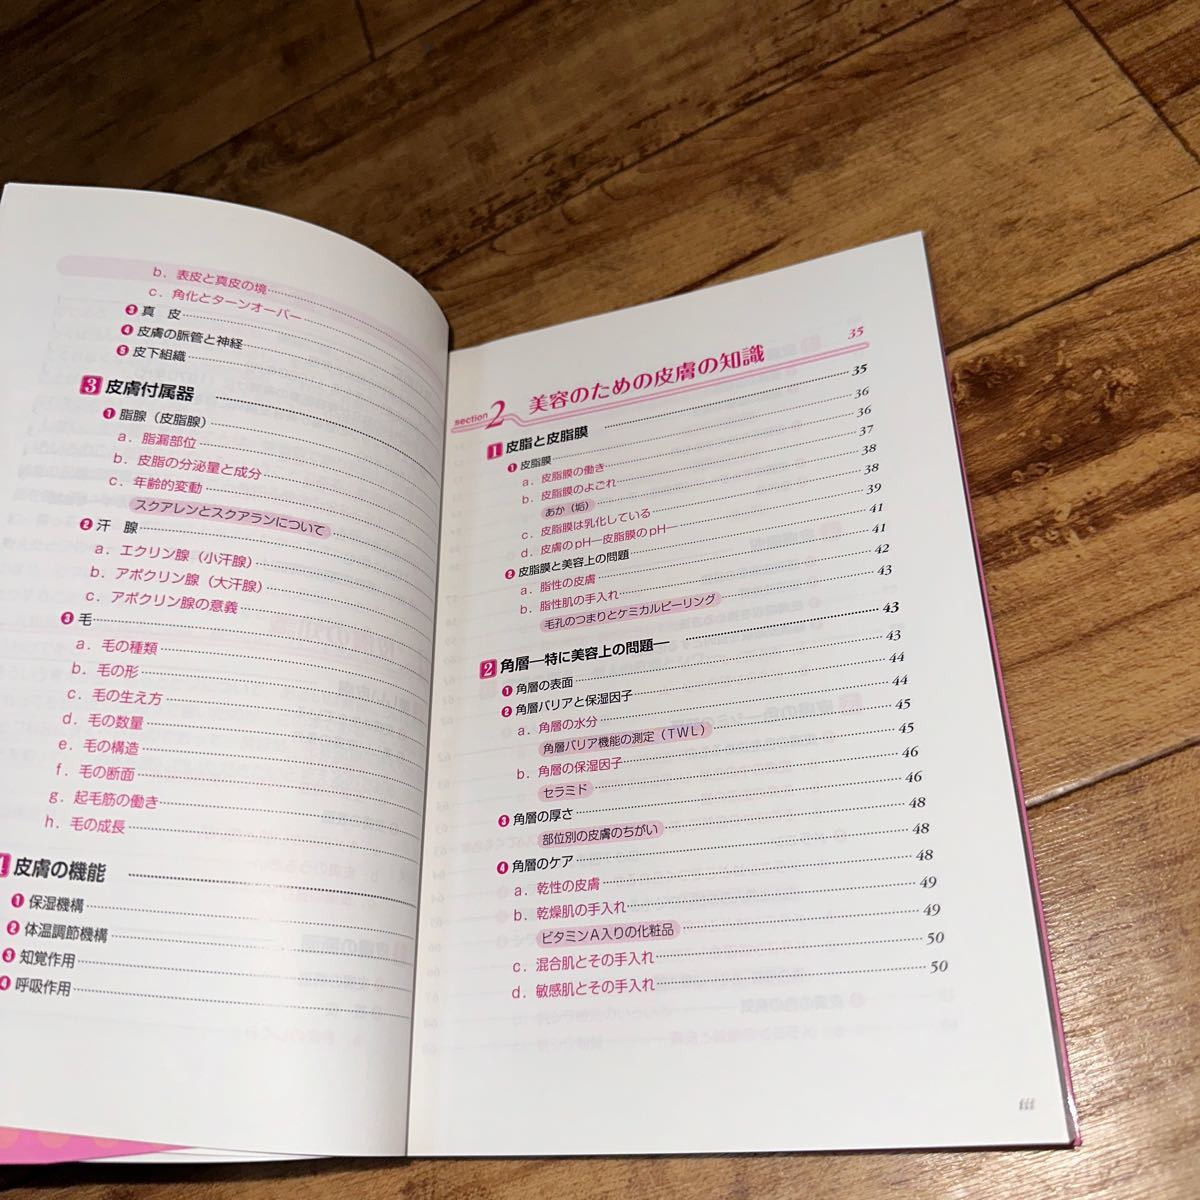 b．表皮と真皮の境
c．角化とターンオーバー
❸ 真　皮
❹ 皮膚の脈管と神経
❺ 皮下組織
3 皮膚付属器
❶ 脂腺（皮脂腺）
a．脂漏部位
b．皮脂の分泌量と成分
c．年齢的変動
スクアレンとスクアランについて
❷ 汗　腺
a．エクリン腺（小汗腺）
b．アポクリン腺（大汗腺）
c．アポクリン腺の意義
❸ 毛
a．毛の種類
b．毛の形
c．毛の生え方
d．毛の数量
e．毛の構造
f．毛の断面
g．起毛筋の働き
h．毛の成長
4 皮膚の機能
❶ 保湿機構
❷ 体温調節機構
❸ 知覚作用
❹ 呼吸作用
section 2 美容のための皮膚の知識 35
1 皮脂と皮脂膜 35
❶ 皮脂膜 36
a．皮脂膜の働き 36
b．皮脂膜のよごれ 37
あか（垢） 38
c．皮脂膜は乳化している 38
d．皮膚のpH―皮脂膜のpH― 39
❷ 皮脂膜と美容上の問題 41
a．脂性の皮膚 41
b．脂性肌の手入れ 42
毛孔のつまりとケミカルピーリング 43
2 角層―特に美容上の問題― 43
❶ 角層の表面 43
❷ 角層バリアと保湿因子 44
a．角層の水分 44
角層バリア機能の測定（TWL） 45
b．角層の保湿因子 45
セラミド 46
❸ 角層の厚さ 46
部位別の皮膚のちがい 48
❹ 角層のケア 48
a．乾性の皮膚 48
b．乾燥肌の手入れ 49
ビタミンA入りの化粧品 49
c．混合肌とその手入れ 50
d．敏感肌とその手入れ 50
iii